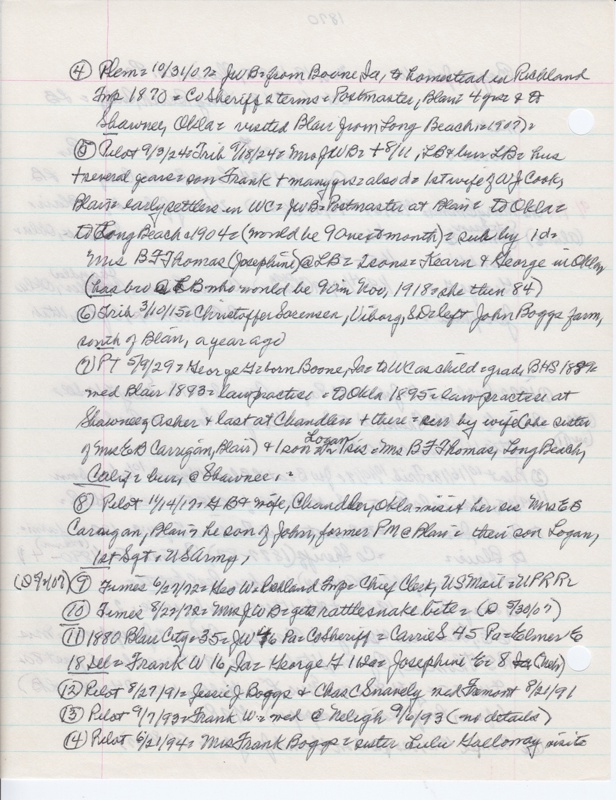 ④ Plem = 10/31/07 = JWB = from Boone, Ia, to homestead in Richland
Twp 1870 = Co Sheriff 2 terms = Postmaster, Blair 4 yrs & to
Shawnee, Okla = visited Blair from Long Beach = 1907) =
⑤ Pilot 9/3/24 = Trib 9/18/24 = Mrs JWB = + 8/11, LB & bur LB = hus
+ several years = son Frank + many yrs = also d = 1st wife of WJ Cook,
Blair = early settlers in WC = JWB = Postmaster at Blair = to Okla =
to Long Beach = 1904 = (would be 90 next month) = surv by 1 d =
Mrs BF Thomas (Josephine) @ LB = 2 sons = Kearn & George in Okla
(has bro @ LB who would be 90 in Nov, 1918 = she then 84)
⑥ Trib 3/10/15 = Christoffer Sorensen, Viborg, SD = left John Boggs farm,
south of Blair, a year ago
⑦ PT 5/9/29 = George G = born Boone, Ia = to WC as child = grad, BHS 1889 =
med Blair 1893 = law practice = to Okla 1895 = law practice at
Shawnee, Asher & last at Chandler & there = surv by wife (she sister
of Mrs ED Carrigan, Blair) & 1 son Logan 1 sis = Mrs BF Thomas, Long Beach,
Calif = bur, @ Shawnee,
⑧ Pilot 11/14/17 = GB & wife, Chandler, Okla = visit her sis Mrs ED
Carrigan, Blair = he son of John, former PM @ Blair = their son Logan,
1st Sgt, US Army,
(D 5/07) ⑨ Times 6/27/72 = Geo W = Richland Twp = Chief Clerk, US Mail = UPRR
⑩ Times 8/22/72 = Mrs JWB = gets rattlesnake bite = (D 5/30/07)
⑪ 1880 Blair City = 35 = JW 46 Pa = Co Sheriff = Carrie S 45 Pa = Elmer E
18 Ill = Frank W 16, Ia = George G 12 Ia = Josephine E = 8 (Neb)
⑫ Pilot 8/27/91 = Jessie J Boggs & Chas C Snavely med Fremont 8/21/91
⑬ Pilot 9/7/93 = Frank W = med @ Neligh 9/6/93 (no details)
⑭ Pilot 6/21/94 = Mrs Frank Boggs = sister Lulu Galloway visits